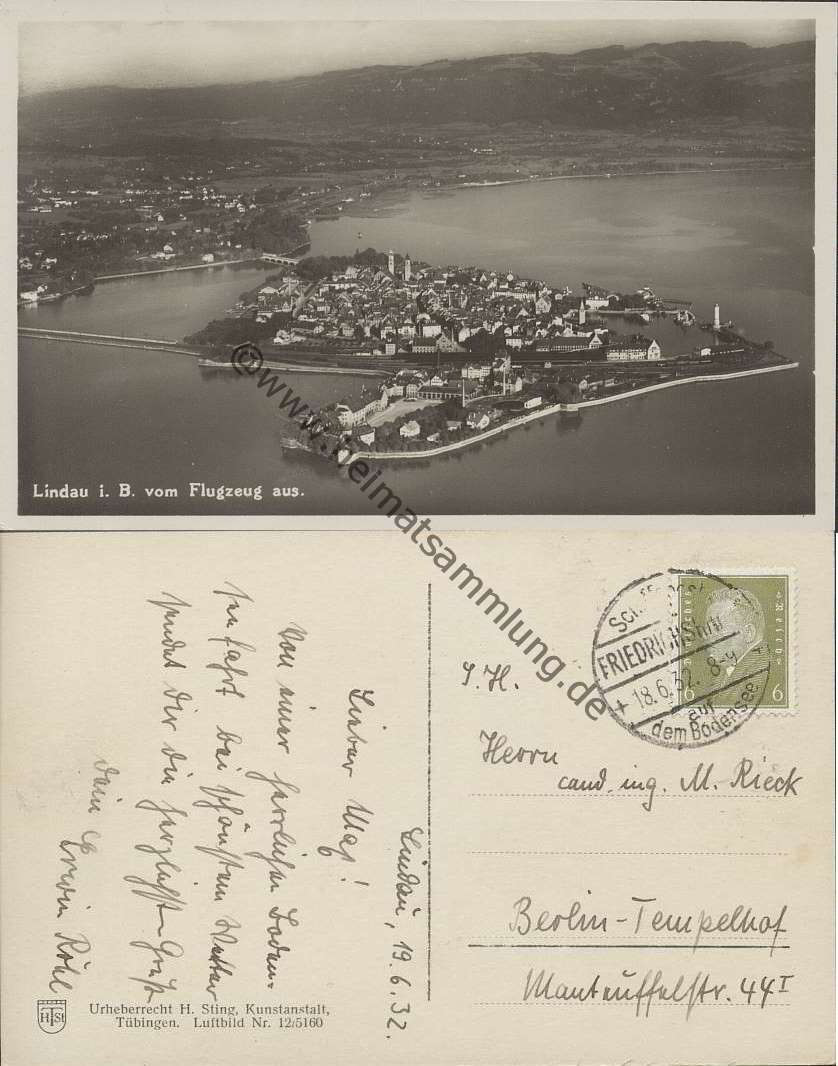 Lindau i. B. vom Flugzeug aus.
© www.heimatsammlung.de
FRIEDRICHSHAFEN
18.6.32. 8-9
auf
dem Bodensee
6 6
S. H.
Herrn
cand. ing. M. Rieck
Berlin-Tempelhof
Manteuffelstr. 44 I
Lindau, 19.6.32.
Lieber Max!
Von einer herrlichen Boden-
seefahrt bei schönstem Wetter
sendet Dir die herzlichsten Grüße
Dein
Erwin Röhl
HStT
Urheberrecht H. Sting, Kunstanstalt,
Tübingen. Luftbild Nr. 12/5160